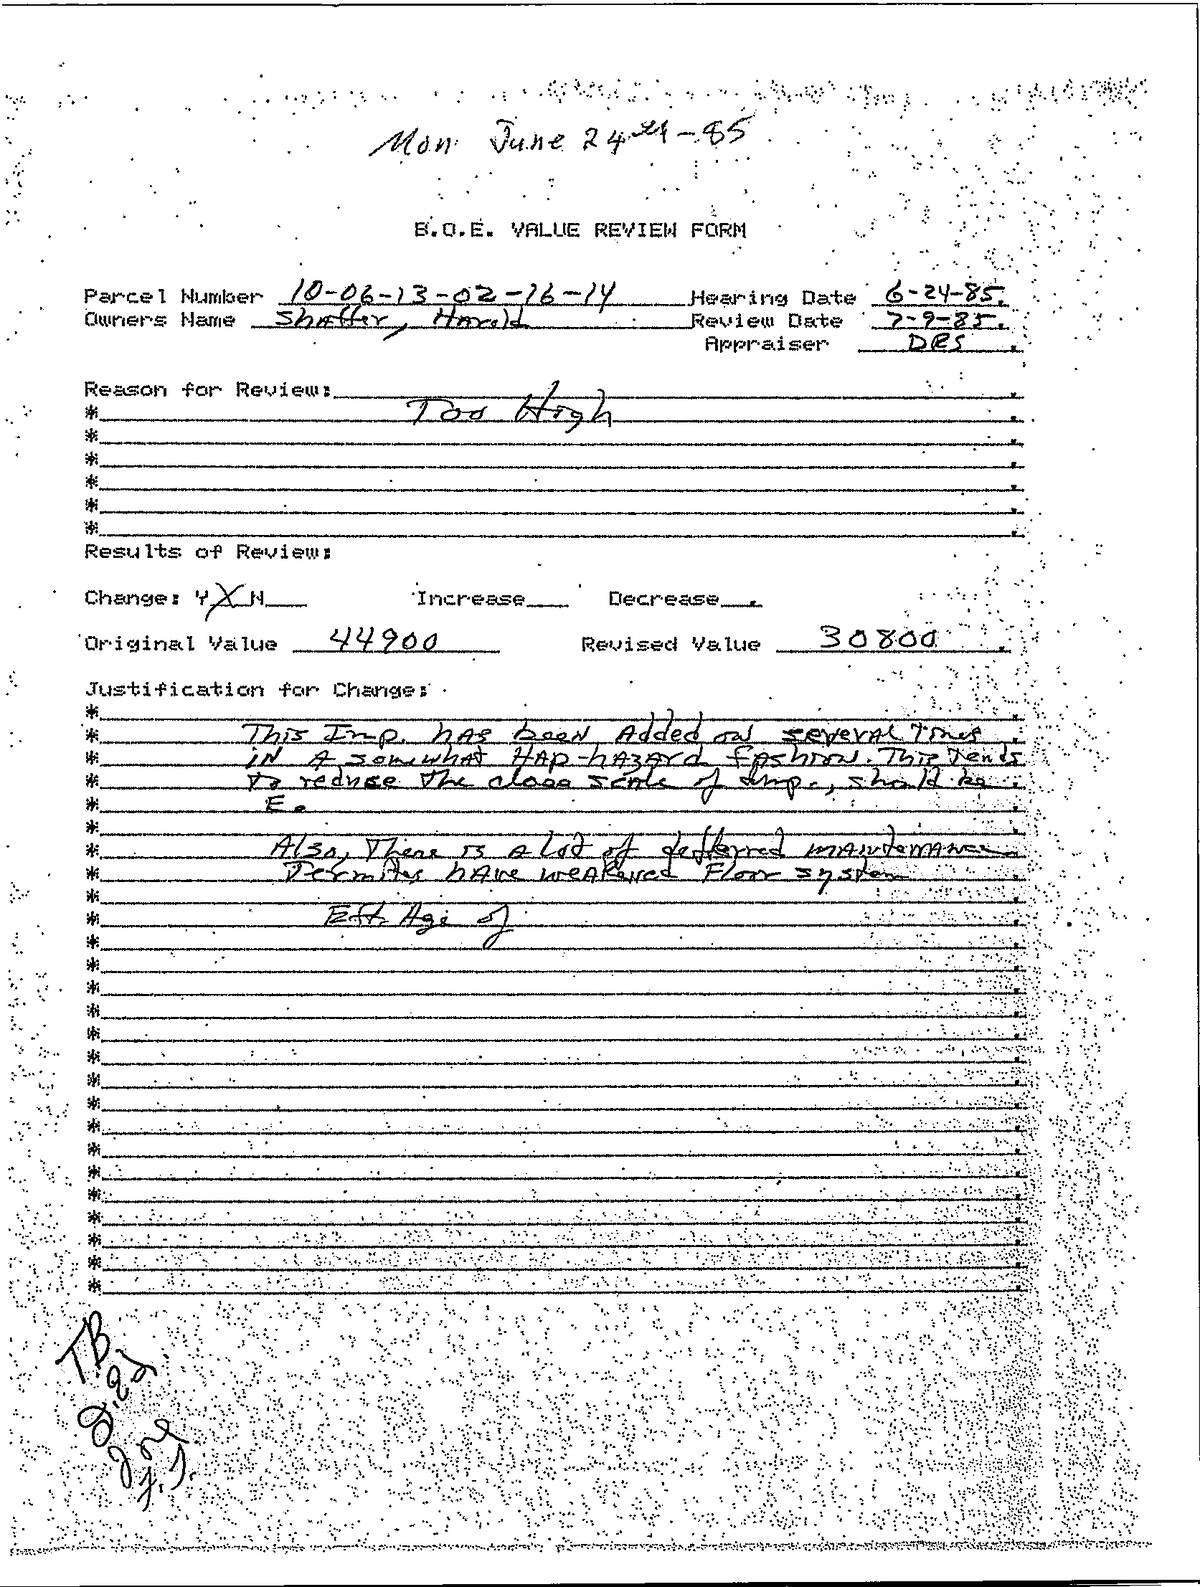 Mon June 24th-85
B.O.E. VALUE REVIEW FORM
Parcel Number 10-06-13-02-16-14 Hearing Date 6-24-85.
Owners Name Shaffer, Harold Review Date 7-9-85.
Appraiser DRS.
Reason for Review:
* Too High
*
*
*
*
*
Results of Review:
Change: Y X N Increase Decrease .
Original Value 44900 Revised Value 30800 .
Justification for Change:
*
* This Imp. has been Added on several Times
* in A somewhat HAP-hAZArd fashion. This Tends
* To reduce the class scale of Imp., should be
* E.
*
* Also, There is a lot of deferred maintenance
* Termites have weakened Floor system
*
* Eff. Age of
*
*
*
*
*
*
*
*
*
*
*
*
*
*
*
*
TB